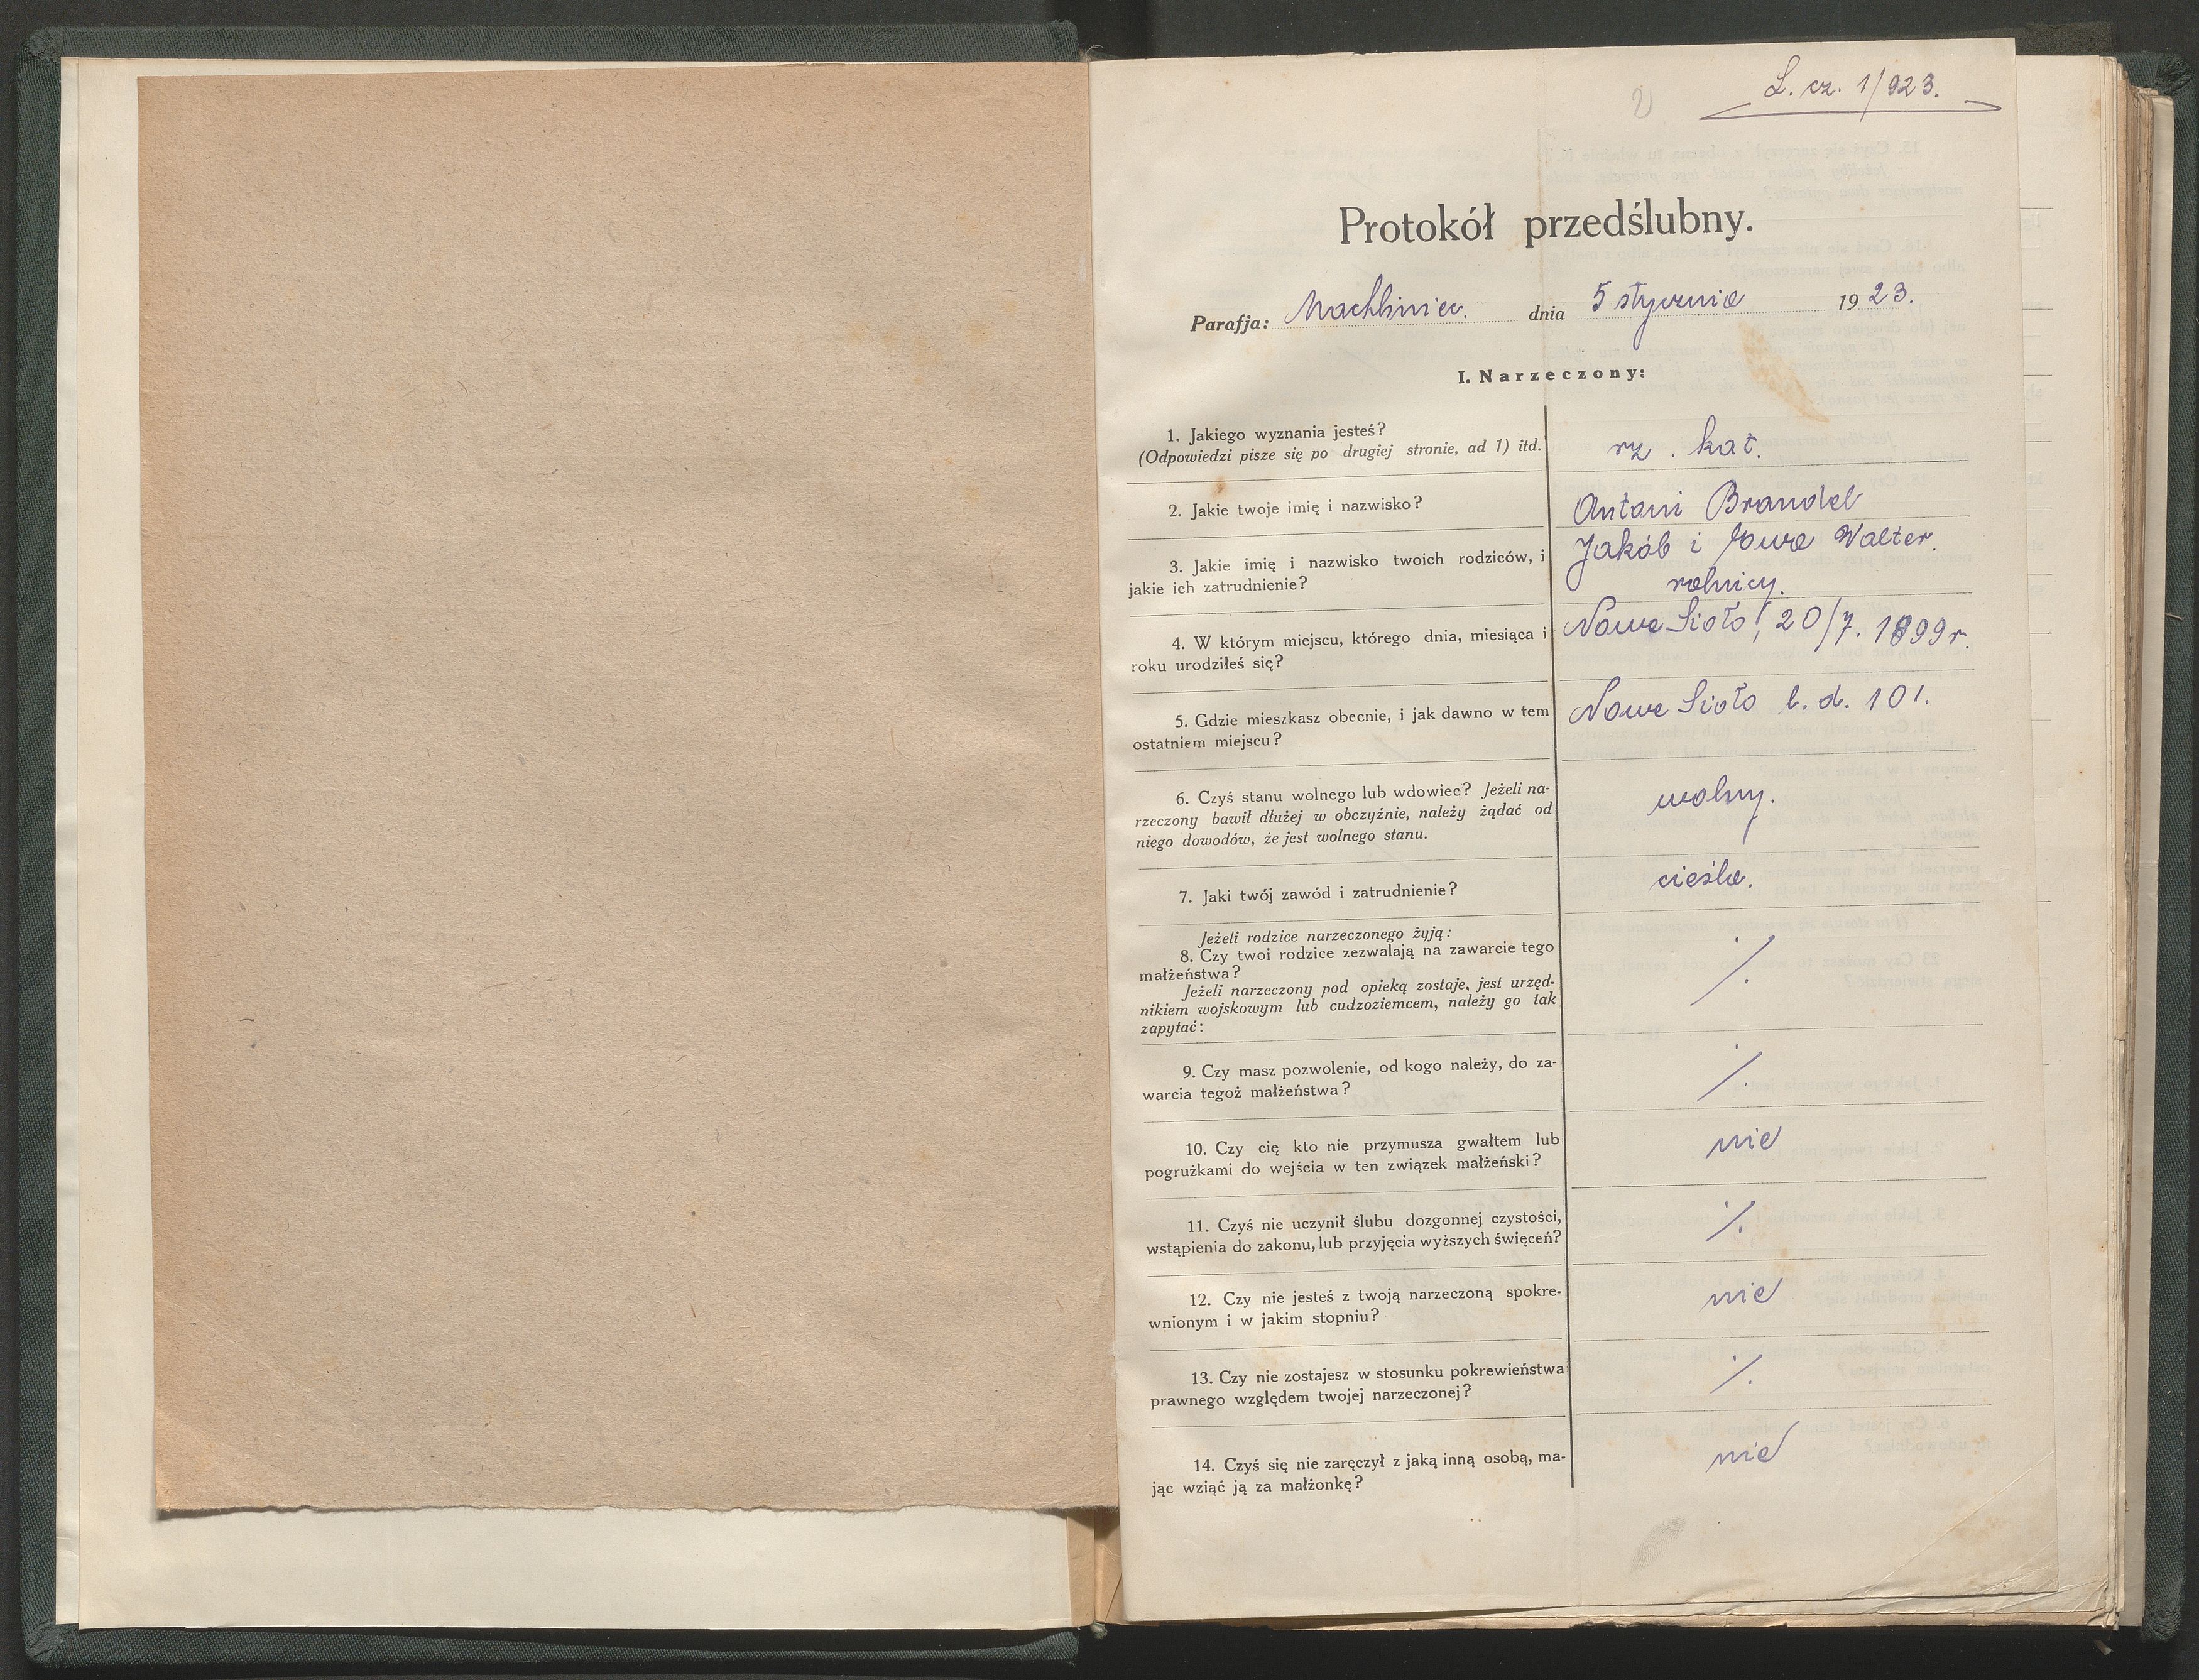 L. cz. 1/923.
2
Protokół przedślubny.
Parafja: Machliniec. dnia 5 stycznia 1923.
I. Narzeczony:
1. Jakiego wyznania jesteś?
(Odpowiedzi pisze się po drugiej stronie, ad 1) itd.
rz. kat.
2. Jakie twoje imię i nazwisko?
Antoni Brandel
3. Jakie imię i nazwisko twoich rodziców, i
jakie ich zatrudnienie?
Jakób i Ewa Walter.
rolnicy.
4. W którym miejscu, którego dnia, miesiąca i
roku urodziłeś się?
Nowe Sioło, 20/7. 1899 r.
5. Gdzie mieszkasz obecnie, i jak dawno w tem
ostatniem miejscu?
Nowe Sioło l. d. 101.
6. Czyś stanu wolnego lub wdowiec? Jeżeli na-
rzeczony bawił dłużej w obczyźnie, należy żądać od
niego dowodów, że jest wolnego stanu.
wolny.
7. Jaki twój zawód i zatrudnienie?
cieśla.
Jeżeli rodzice narzeczonego żyją:
8. Czy twoi rodzice zezwalają na zawarcie tego
małżeństwa?
Jeżeli narzeczony pod opieką zostaje, jest urzęd-
nikiem wojskowym lub cudzoziemcem, należy go tak
zapytać:
⁒
9. Czy masz pozwolenie, od kogo należy, do za-
warcia tegoż małżeństwa?
⁒
10. Czy cię kto nie przymusza gwałtem lub
pogrużkami do wejścia w ten związek małżeński?
nie
11. Czyś nie uczynił ślubu dozgonnej czystości,
wstąpienia do zakonu, lub przyjęcia wyższych święceń?
⁒
12. Czy nie jesteś z twoją narzeczoną spokre-
wnionym i w jakim stopniu?
nie
13. Czy nie zostajesz w stosunku pokrewieństwa
prawnego względem twojej narzeczonej?
⁒
14. Czyś się nie zaręczył z jaką inną osobą, ma-
jąc wziąć ją za małżonkę?
nie